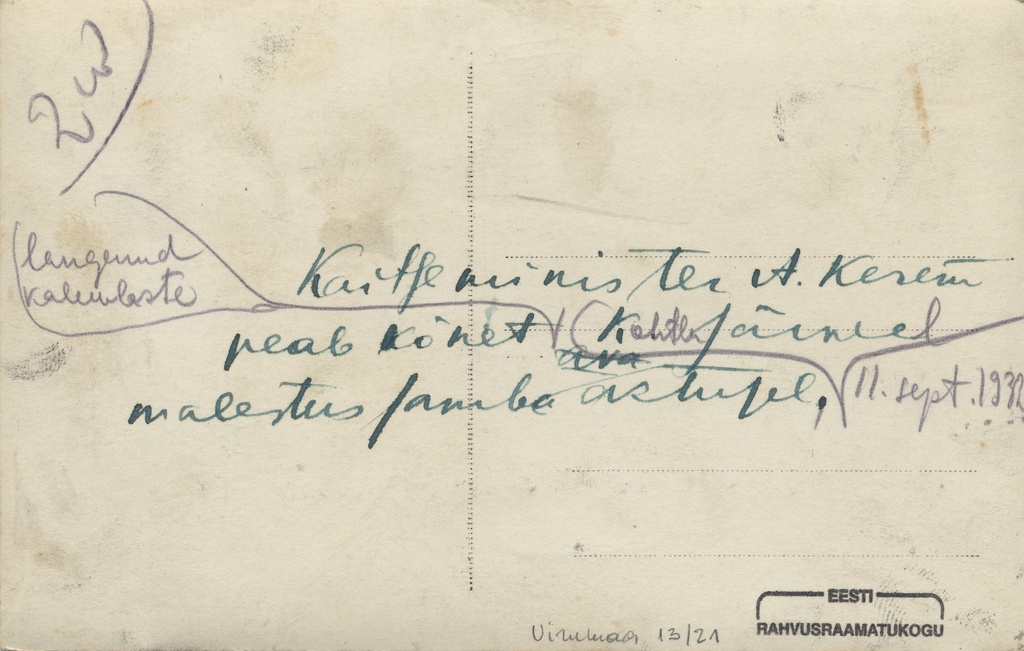 langenud
kalevlaste
Kaitseminister A. Kerem
peab kõnet Kohtla Järvel
malestus samba astupel,
11. sept. 1932
Virumaa 13/21
EESTI
RAHVUSRAAMATUKOGU